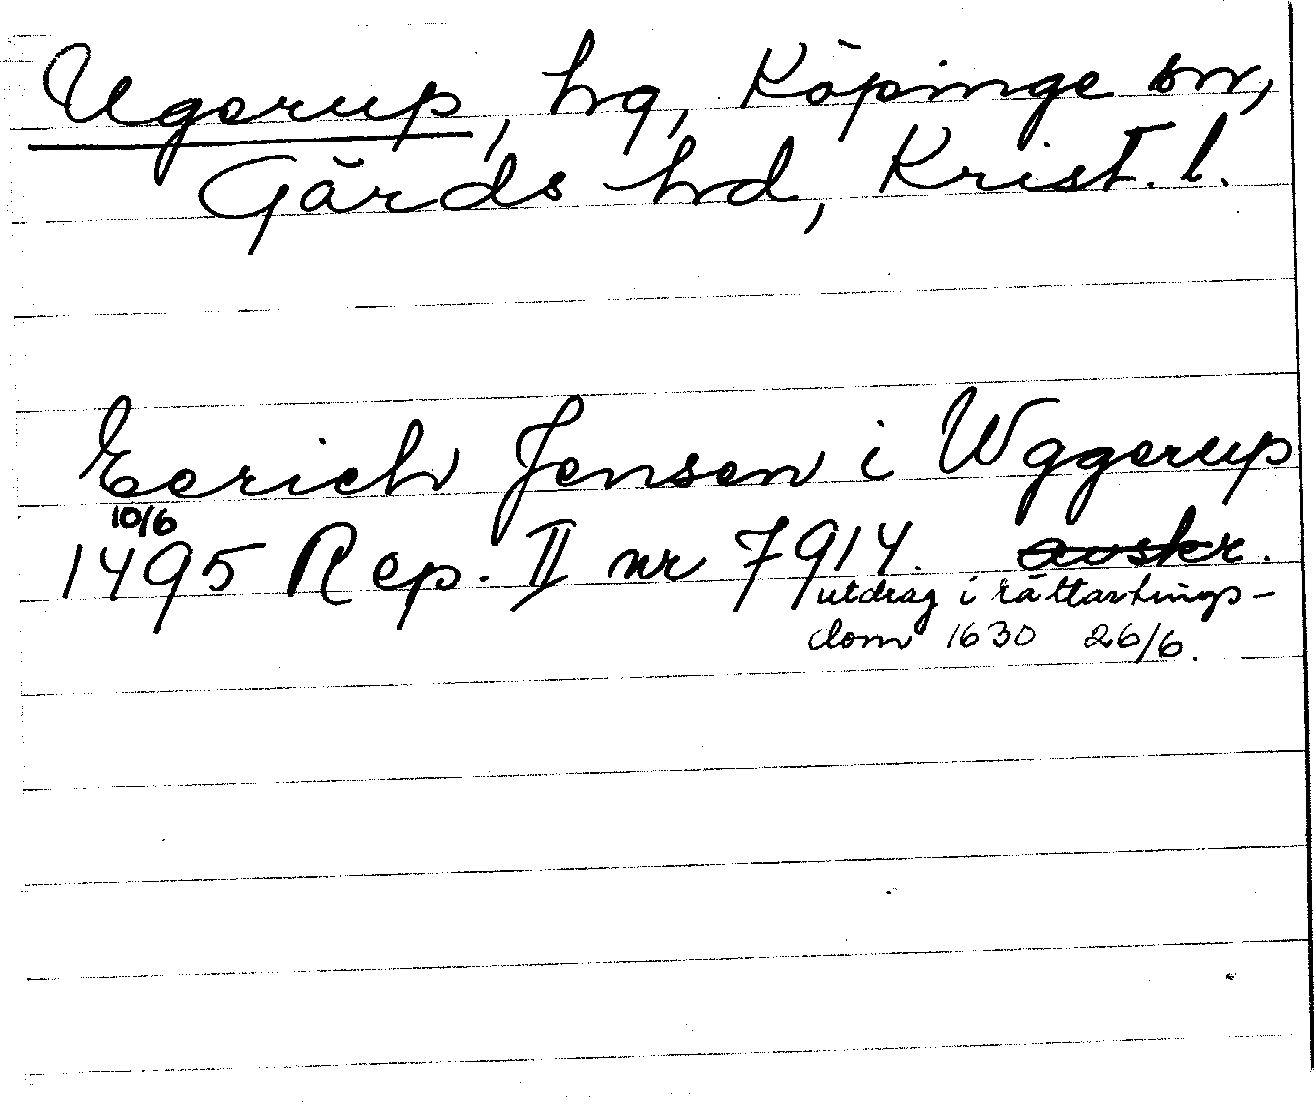 Ugerup, hg, Köpinge sn,
Gärds hd, Krist. l.
Eerich Jensen i Wggerup
10/6
1495 Rep. II nr 7914. avskr.
utdrag i rättartings-
dom 1630 26/6.